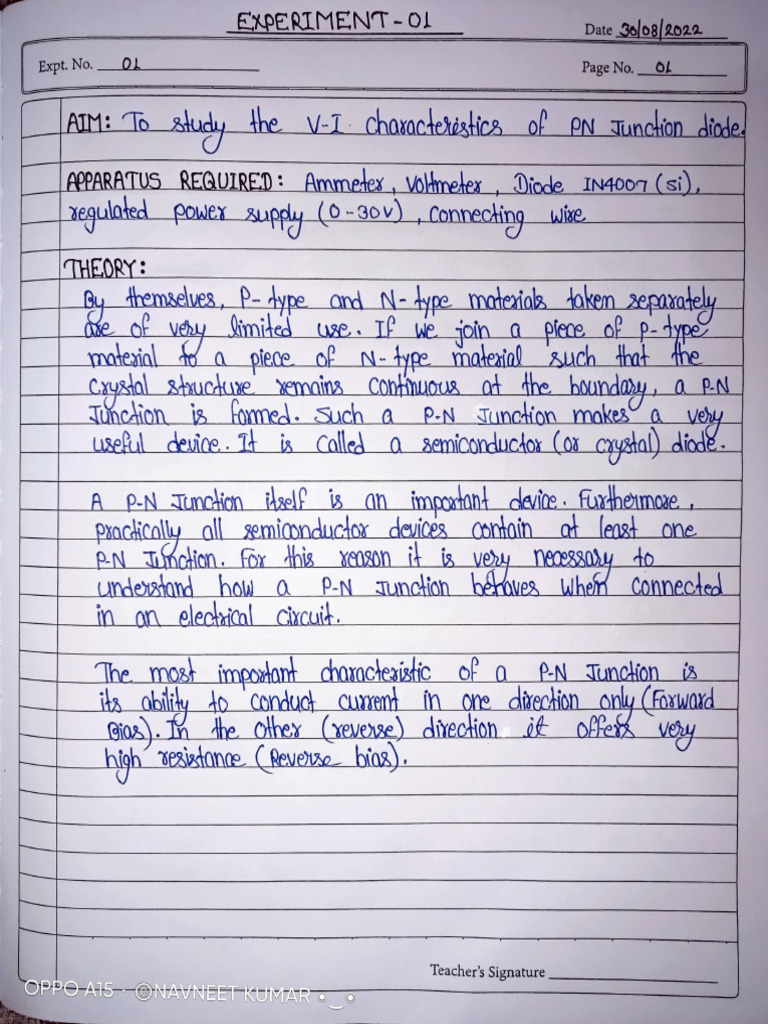 EXPERIMENT-01
Date 30/08/2022
Expt. No. 01
Page No. 01
AIM: To study the V-I characteristics of PN Junction diode.
APPARATUS REQUIRED: Ammeter, Voltmeter, Diode IN4007 (Si),
regulated power supply (0-30V), Connecting wire
THEORY:
By themselves, P-type and N-type materials taken separately
are of very limited use. If we join a piece of P-type
material to a piece of N-type material such that the
Crystal structure remains continuous at the boundary, a P-N
Junction is formed. Such a P-N Junction makes a very
useful device. It is called a semiconductor (or crystal) diode.
A P-N Junction itself is an important device. Furthermore,
practically all semiconductor devices contain at least one
P-N Junction. For this reason it is very necessary to
understand how a P-N Junction behaves when connected
in an electrical circuit.
The most important characteristic of a P-N Junction is
its ability to conduct current in one direction only (Forward
Bias). In the other (reverse) direction it offers very
high resistance (Reverse bias).
Teacher's Signature
OPPO A15 · ©NAVNEET KUMAR